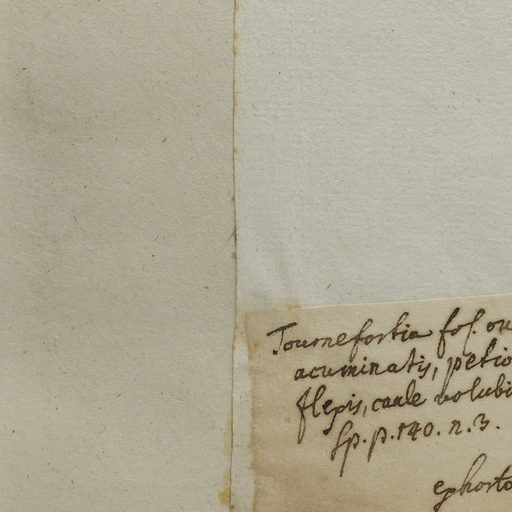 Tournefortia fol. ov
acuminatis, petio
flexis, caule volubi
Sp. p. 140. n. 3.
ephorto